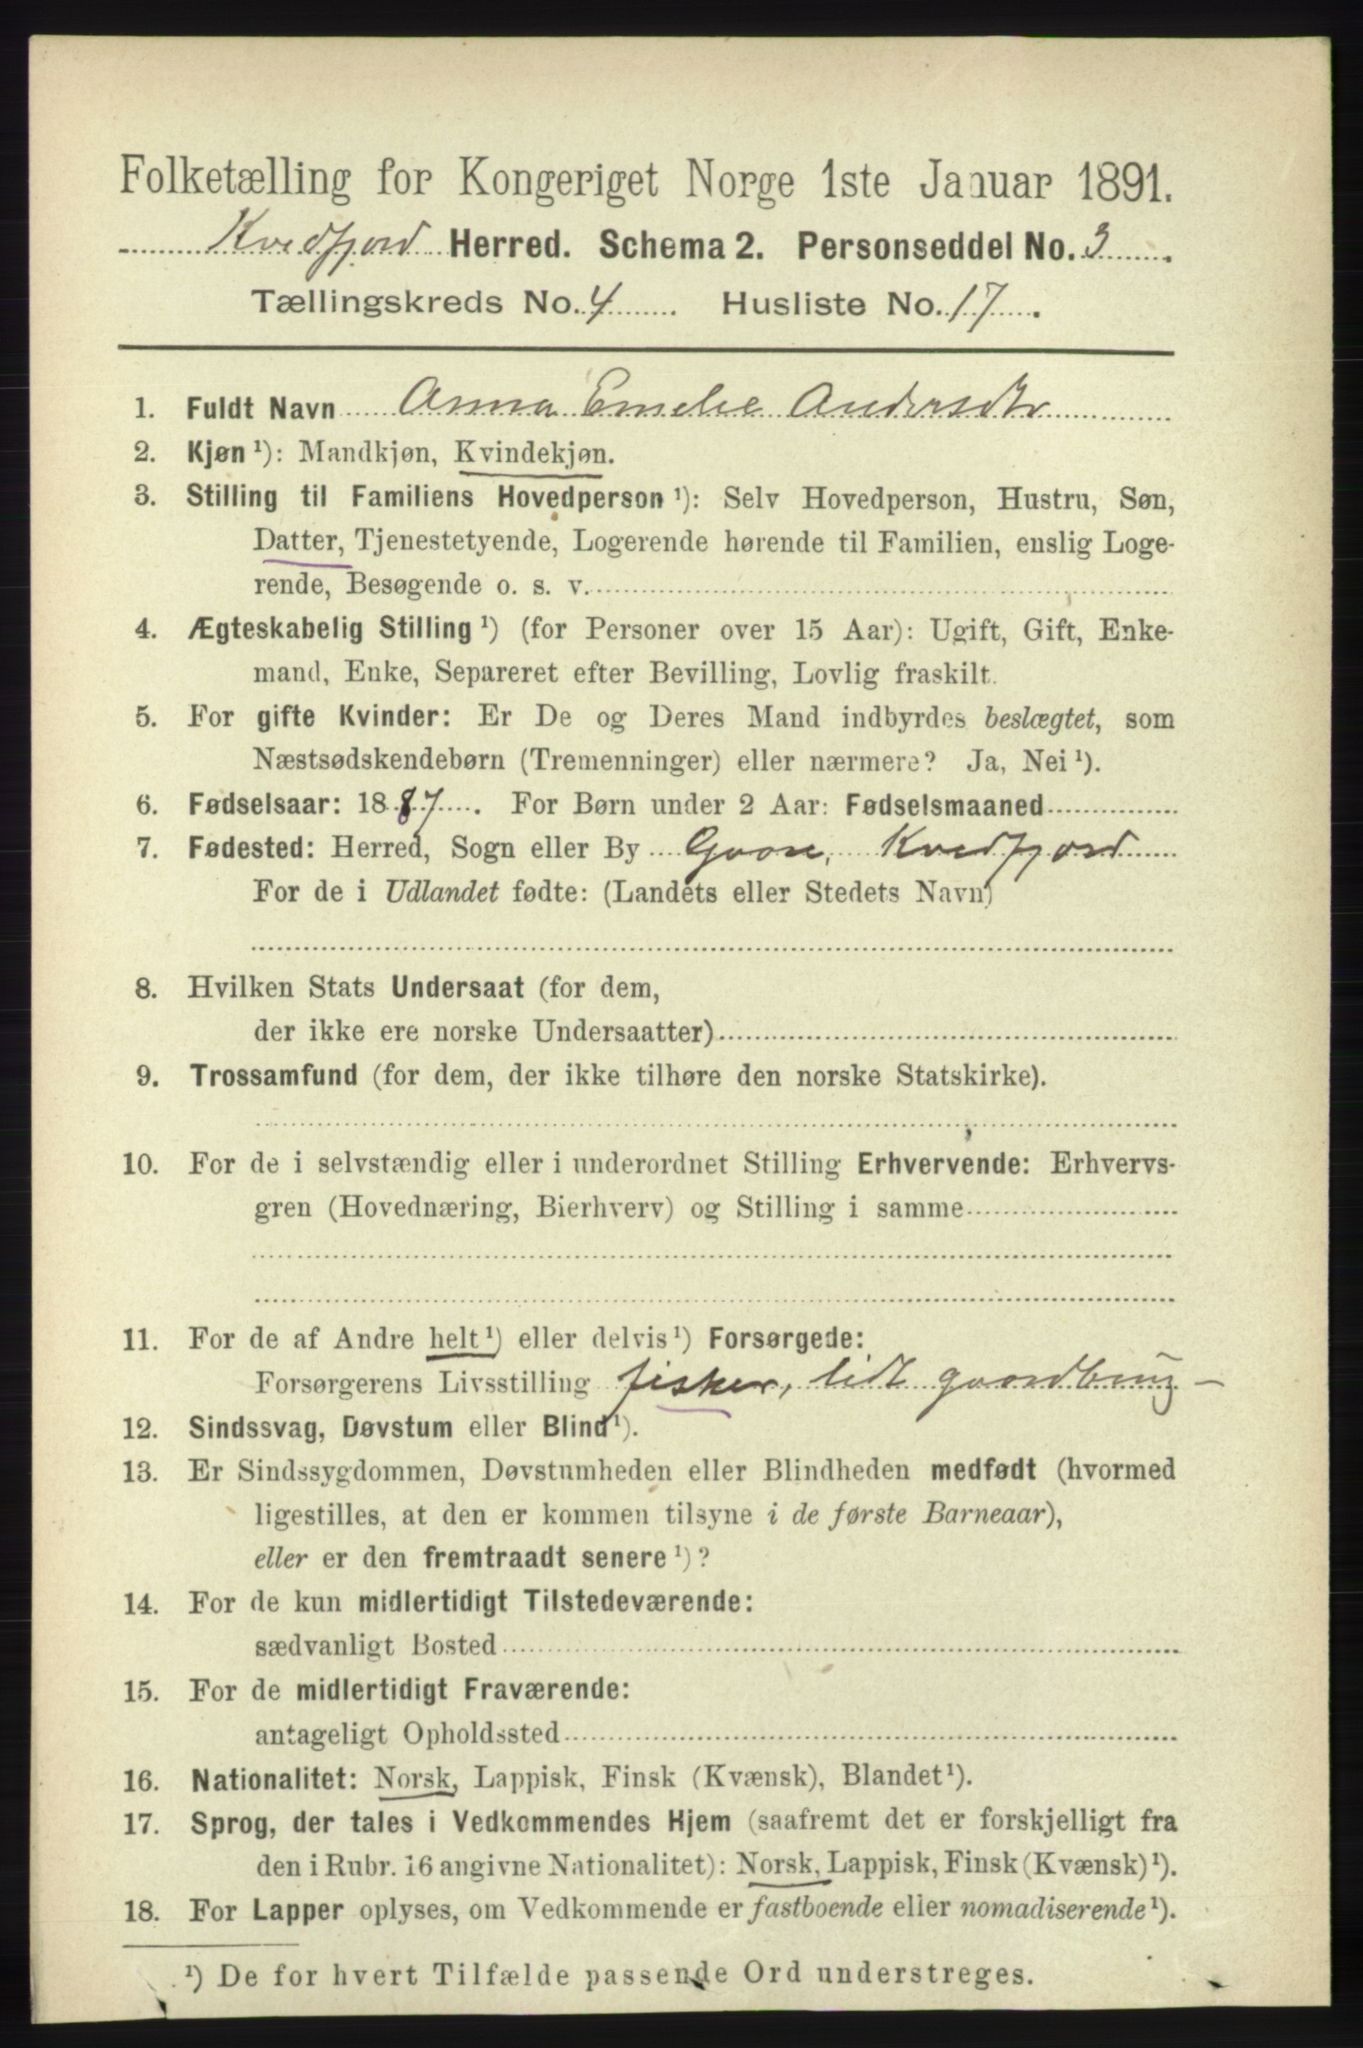 Folketælling for Kongeriget Norge 1ste Januar 1891.
Kvedfjord Herred. Schema 2. Personseddel No. 3.
Tællingskreds No. 4. Husliste No. 17.
1. Fuldt Navn Anna Emelie Andersdtr
2. Kjøn ¹): Mandkjøn, Kvindekjøn.
3. Stilling til Familiens Hovedperson ¹): Selv Hovedperson, Hustru, Søn,
Datter, Tjenestetyende, Logerende hørende til Familien, enslig Loge-
rende, Besøgende o. s. v.
4. Ægteskabelig Stilling ¹) (for Personer over 15 Aar): Ugift, Gift, Enke-
mand, Enke, Separeret efter Bevilling, Lovlig fraskilt.
5. For gifte Kvinder: Er De og Deres Mand indbyrdes beslægtet, som
Næstsødskendebørn (Tremenninger) eller nærmere? Ja, Nei ¹).
6. Fødselsaar: 1887. For Børn under 2 Aar: Fødselsmaaned
7. Fødested: Herred, Sogn eller By Kvedfjord
For de i Udlandet fødte: (Landets eller Stedets Navn)
8. Hvilken Stats Undersaat (for dem,
der ikke ere norske Undersaatter)
9. Trossamfund (for dem, der ikke tilhøre den norske Statskirke).
10. For de i selvstændig eller i underordnet Stilling Erhvervende: Erhvervs-
gren (Hovednæring, Bierhverv) og Stilling i samme
11. For de af Andre helt ¹) eller delvis ¹) Forsørgede:
Forsørgerens Livsstilling fisker, lidt gaardbrug –
12. Sindssvag, Døvstum eller Blind ¹).
13. Er Sindssygdommen, Døvstumheden eller Blindheden medfødt (hvormed
ligestilles, at den er kommen tilsyne i de første Barneaar),
eller er den fremtraadt senere ¹)?
14. For de kun midlertidigt Tilstedeværende:
sædvanligt Bosted
15. For de midlertidigt Fraværende:
antageligt Opholdssted
16. Nationalitet: Norsk, Lappisk, Finsk (Kvænsk), Blandet ¹).
17. Sprog, der tales i Vedkommendes Hjem (saafremt det er forskjelligt fra
den i Rubr. 16 angivne Nationalitet): Norsk, Lappisk, Finsk (Kvænsk) ¹).
18. For Lapper oplyses, om Vedkommende er fastboende eller nomadiserende ¹).
¹) De for hvert Tilfælde passende Ord understreges.